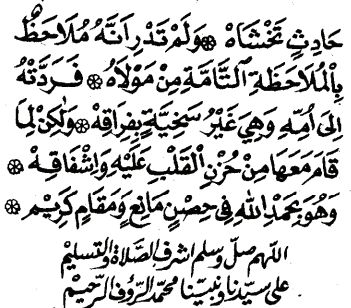 حَادِثٍ تَخْشَاهُ ۞ وَلَمْ تَدْرِ اَنَّهُ مُلَاحَظٌ
بِالْمُلَاحَظَةِ التَّامَّةِ مِنْ مَوْلَاهُ ۞ فَرَدَّتْهُ
اِلَى اُمِّهِ وَهِيَ غَيْرُ سَخِيَّةٍ بِفِرَاقِهْ ۞ وَلٰكِنْ لِمَا
قَامَ مَعَهَا مِنْ حُزْنِ الْقَلْبِ عَلَيْهِ وَاِشْفَاقِهْ ۞
وَهُوَ بِحَمْدِ اللهِ فِى حِصْنٍ مَانِعٍ وَمَقَامٍ كَرِيْمٍ ۞
اللهم صل وسلم اشرف الصلاة والتسليم
على سيدنا ونبينا محمد الرؤف الرحيم